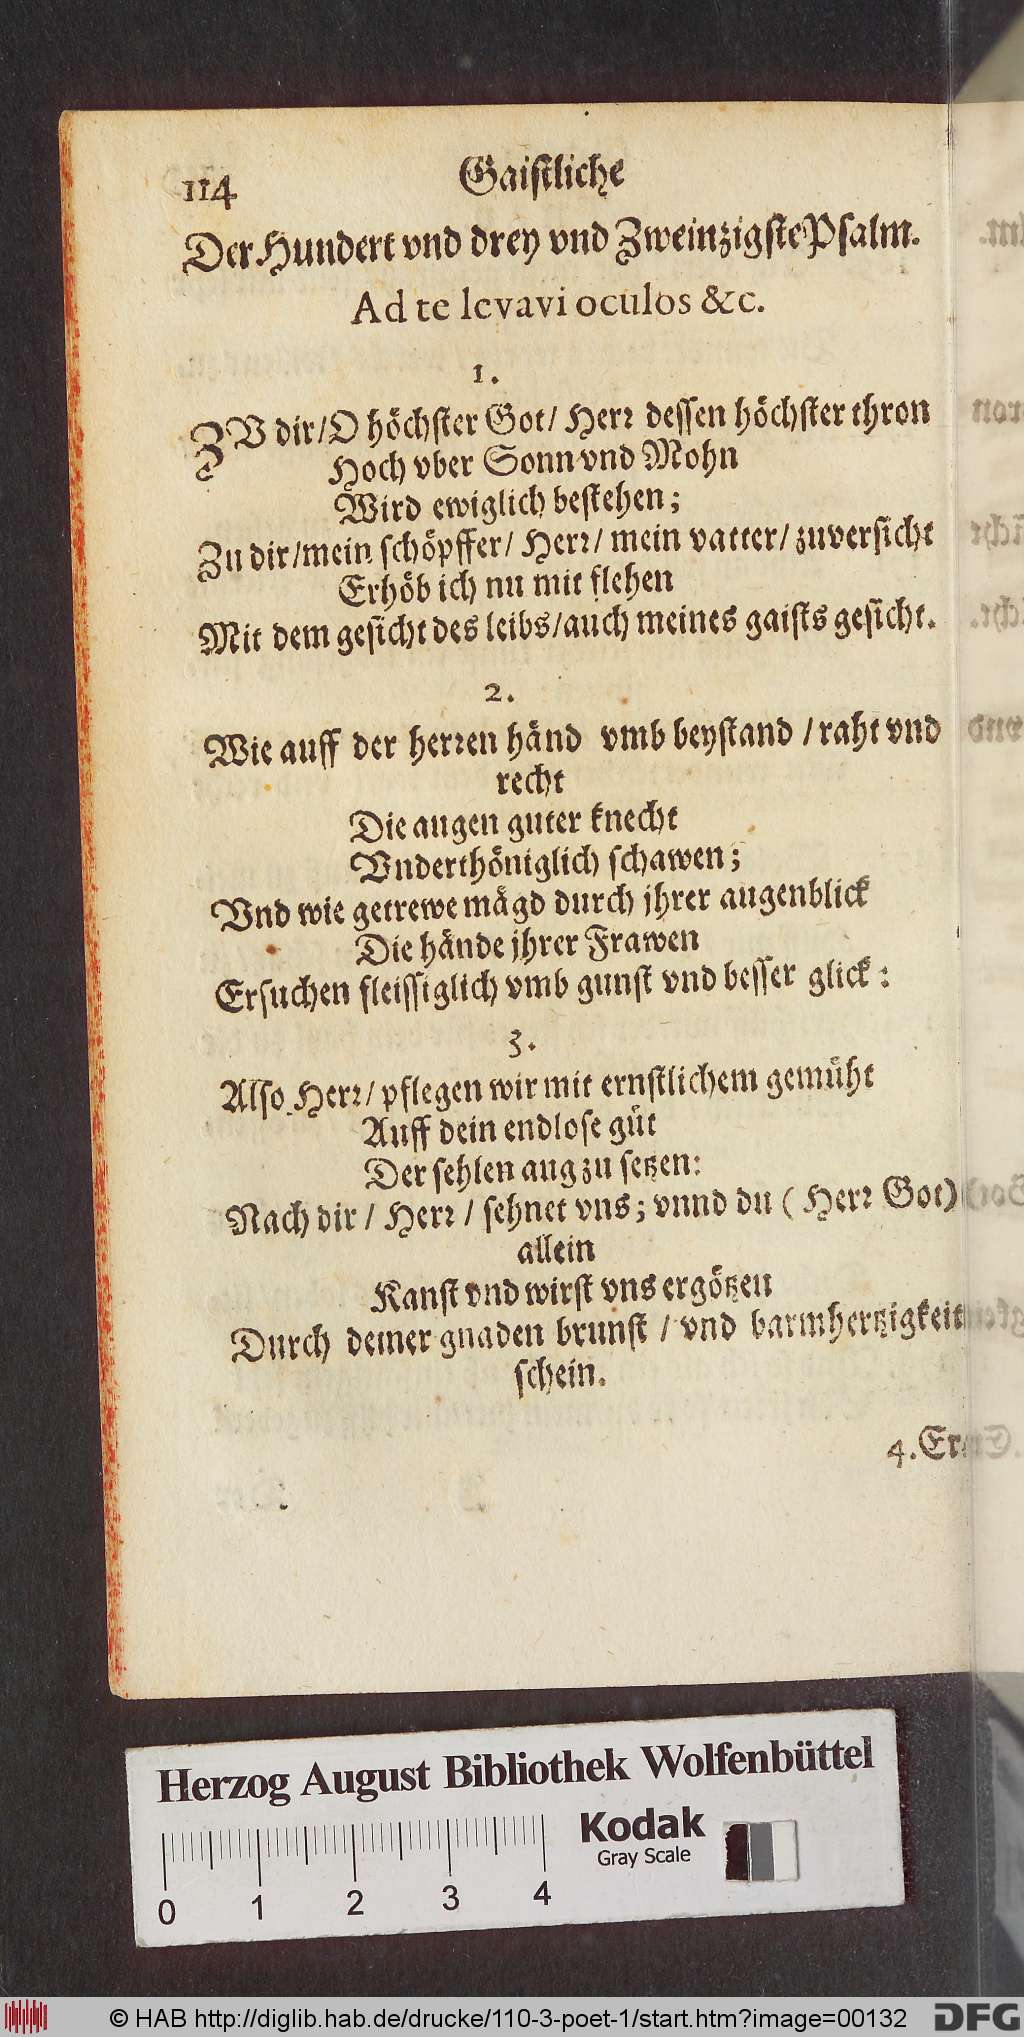 114 Gaistliche
Der Hundert vnd drey vnd Zweinzigste Psalm.
Ad te levavi oculos &c.
1.
ZV dir/O höchster Got/ Herr dessen höchster thron
Hoch vber Sonn vnd Mohn
Wird ewiglich bestehen;
Zu dir/mein schöpffer/ Herr/ mein vatter/ zuversicht
Erhöb ich nu mit flehen
Mit dem gesicht des leibs/auch meines gaists gesicht.
2.
Wie auff der herren händ vmb beystand / raht vnd
recht
Die augen guter knecht
Vnderthöniglich schawen;
Vnd wie getrewe mägd durch jhrer augenblick
Die hände jhrer Frawen
Ersuchen fleissiglich vmb gunst vnd besser glick:
3.
Also Herr/ pflegen wir mit ernstlichem gemüht
Auff dein endlose güt
Der sehlen aug zu setzen:
Nach dir / Herr / sehnet vns; vnnd du ( Herr Got)
allein
Kanst vnd wirst vns ergötzen
Durch deiner gnaden brunst / vnd barmhertzigkeit
schein.
4. Er
Herzog August Bibliothek Wolfenbüttel
Kodak
Gray Scale
0 1 2 3 4
© HAB http://diglib.hab.de/drucke/110-3-poet-1/start.htm?image=00132
DFG